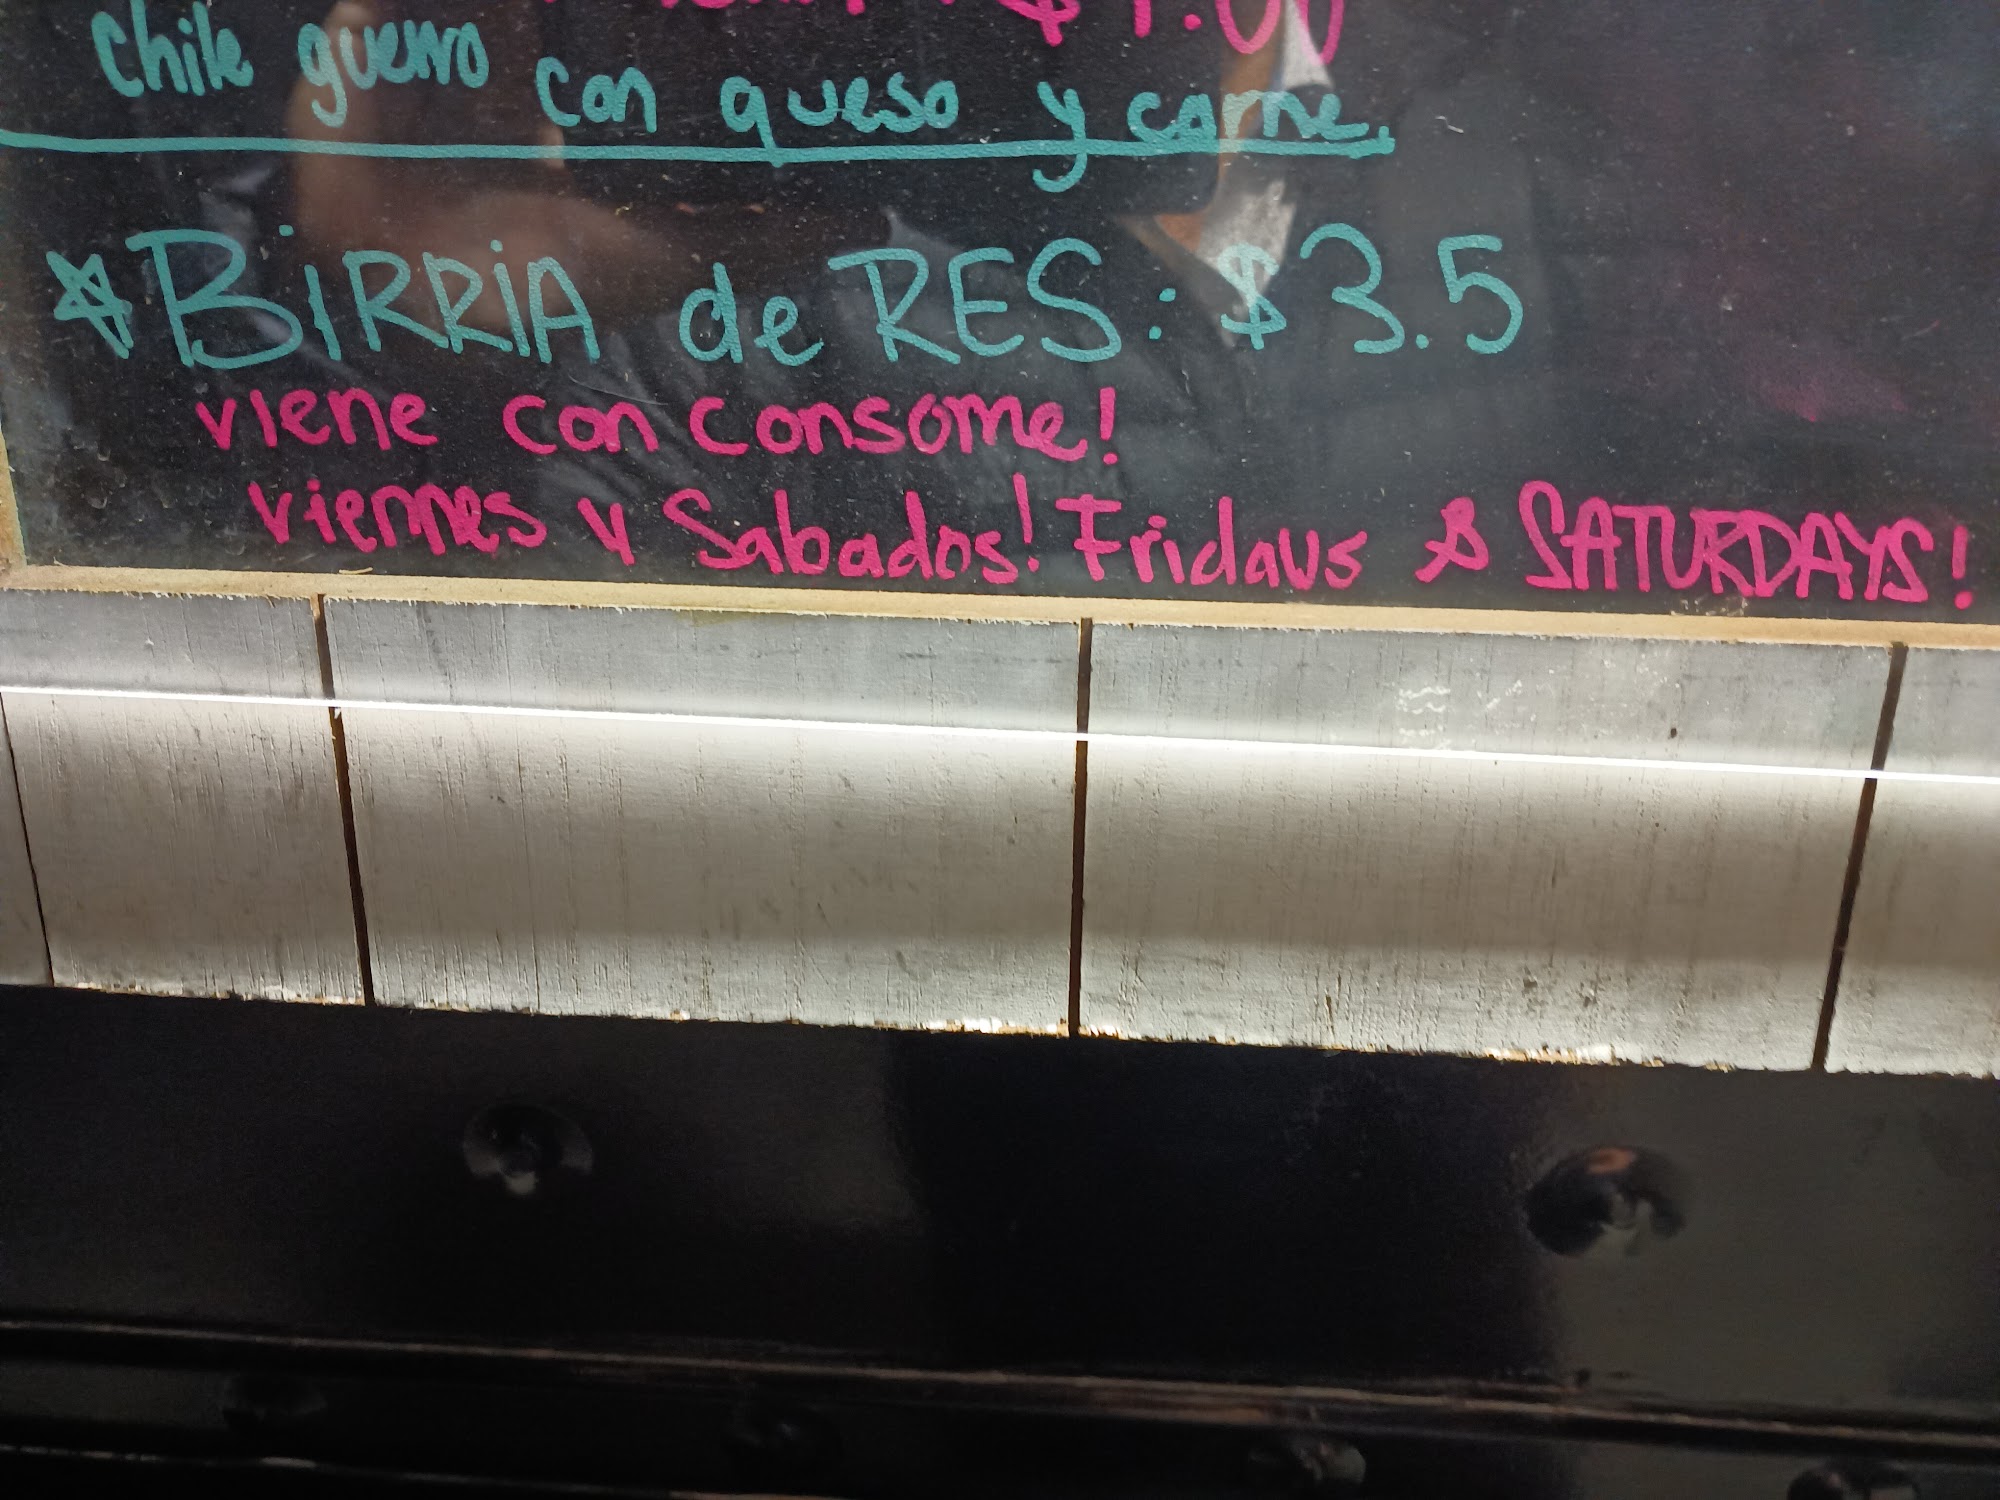 chile guerro con queso y carne.
BiRRiA de RES: $3.5
viene con consome!
viernes y Sabados! Fridays & SATURDAYS!